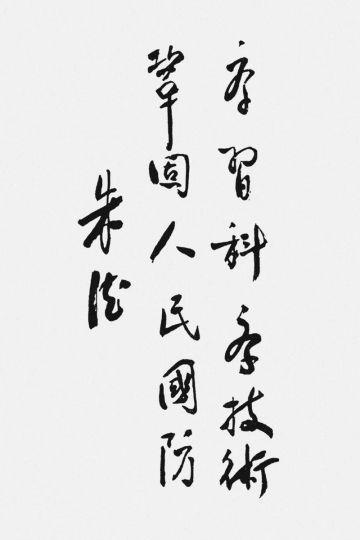 学習科学技術
鞏固人民國防
朱德